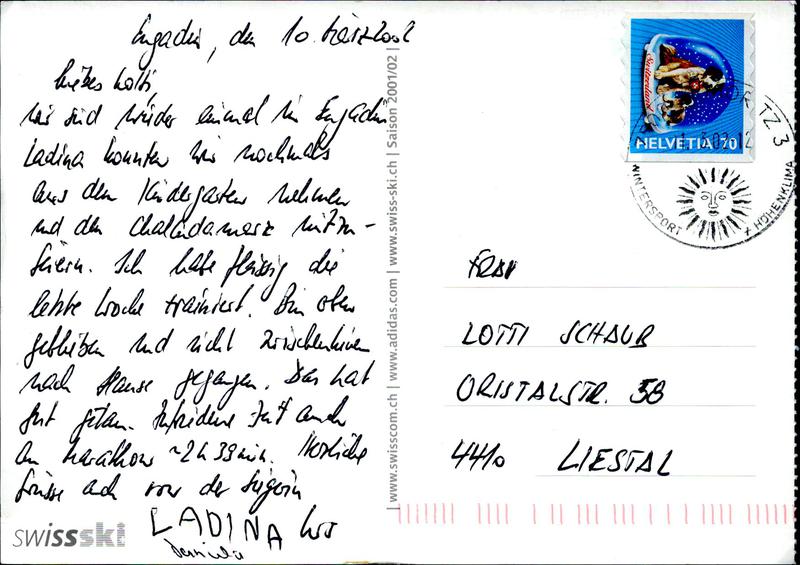 Engadin, den 10. März 2002
Liebes Lotti,
wir sind wieder einmal im Engadin
Ladina konnten wir nochmals
aus dem Kindergarten nehmen
und den Chalandamarz mitzu-
feiern. Ich habe fleissig die
letzte Woche trainiert. Bin oben
geblieben und nicht zwischenhinein
nach Hause gegangen. Das hat
gut getan. Zufriedene Zeit auch
am Marathon ~2h 39min. Herzliche
Grüsse auch von der Siegerin
LADINA
Daniela
swissski
www.swisscom.ch | www.adidas.com | www.swiss-ski.ch | Saison 2001/02
Switzerland
HELVETIA 70
TZ 3
WINTERSPORT
HÖHENKLIMA
FRAU
LOTTI SCHAUB
ORISTALSTR. 58
4410 LIESTAL